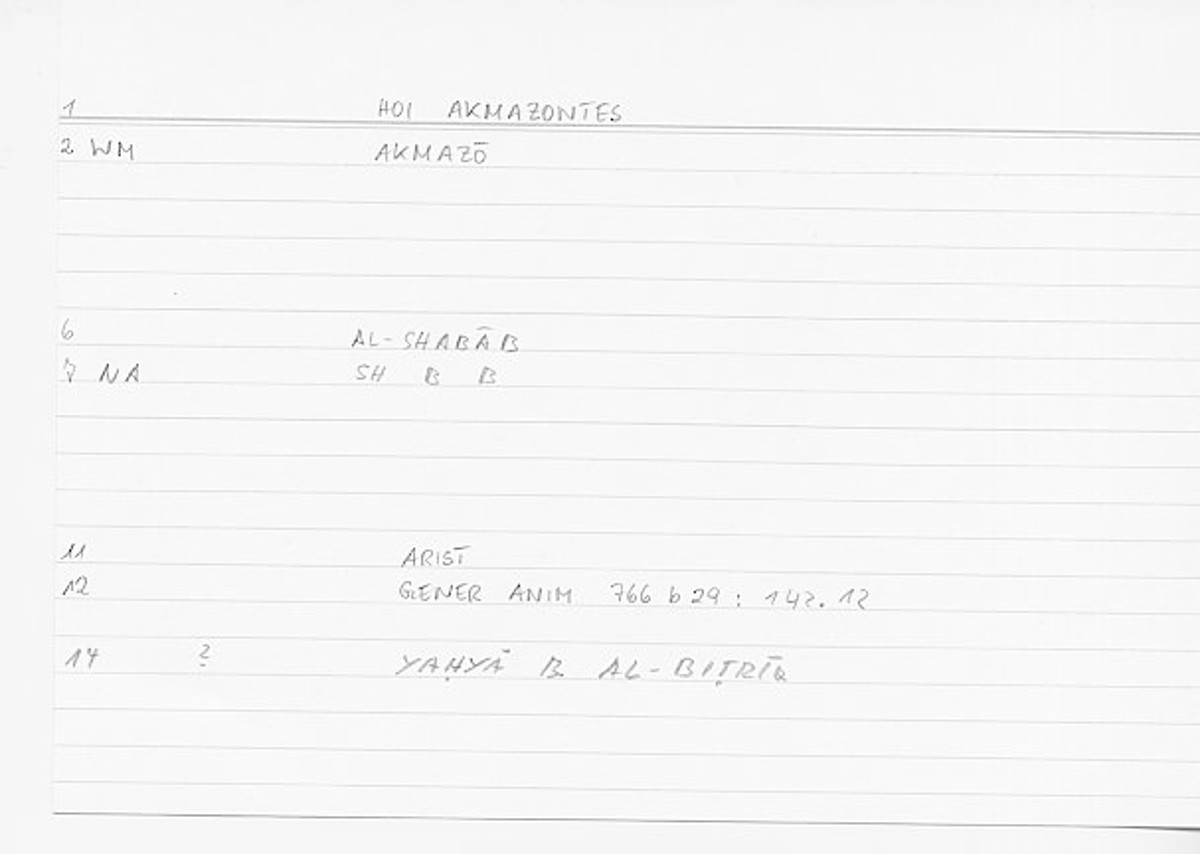 1 HOI AKMAZONTES
2 WM AKMAZŌ
6 AL-SHABĀB
7 NA SH B B
11 ARIST
12 GENER ANIM 766 b 29 : 142.12
14 ? YAḤYĀ B. AL-BIṬRĪQ